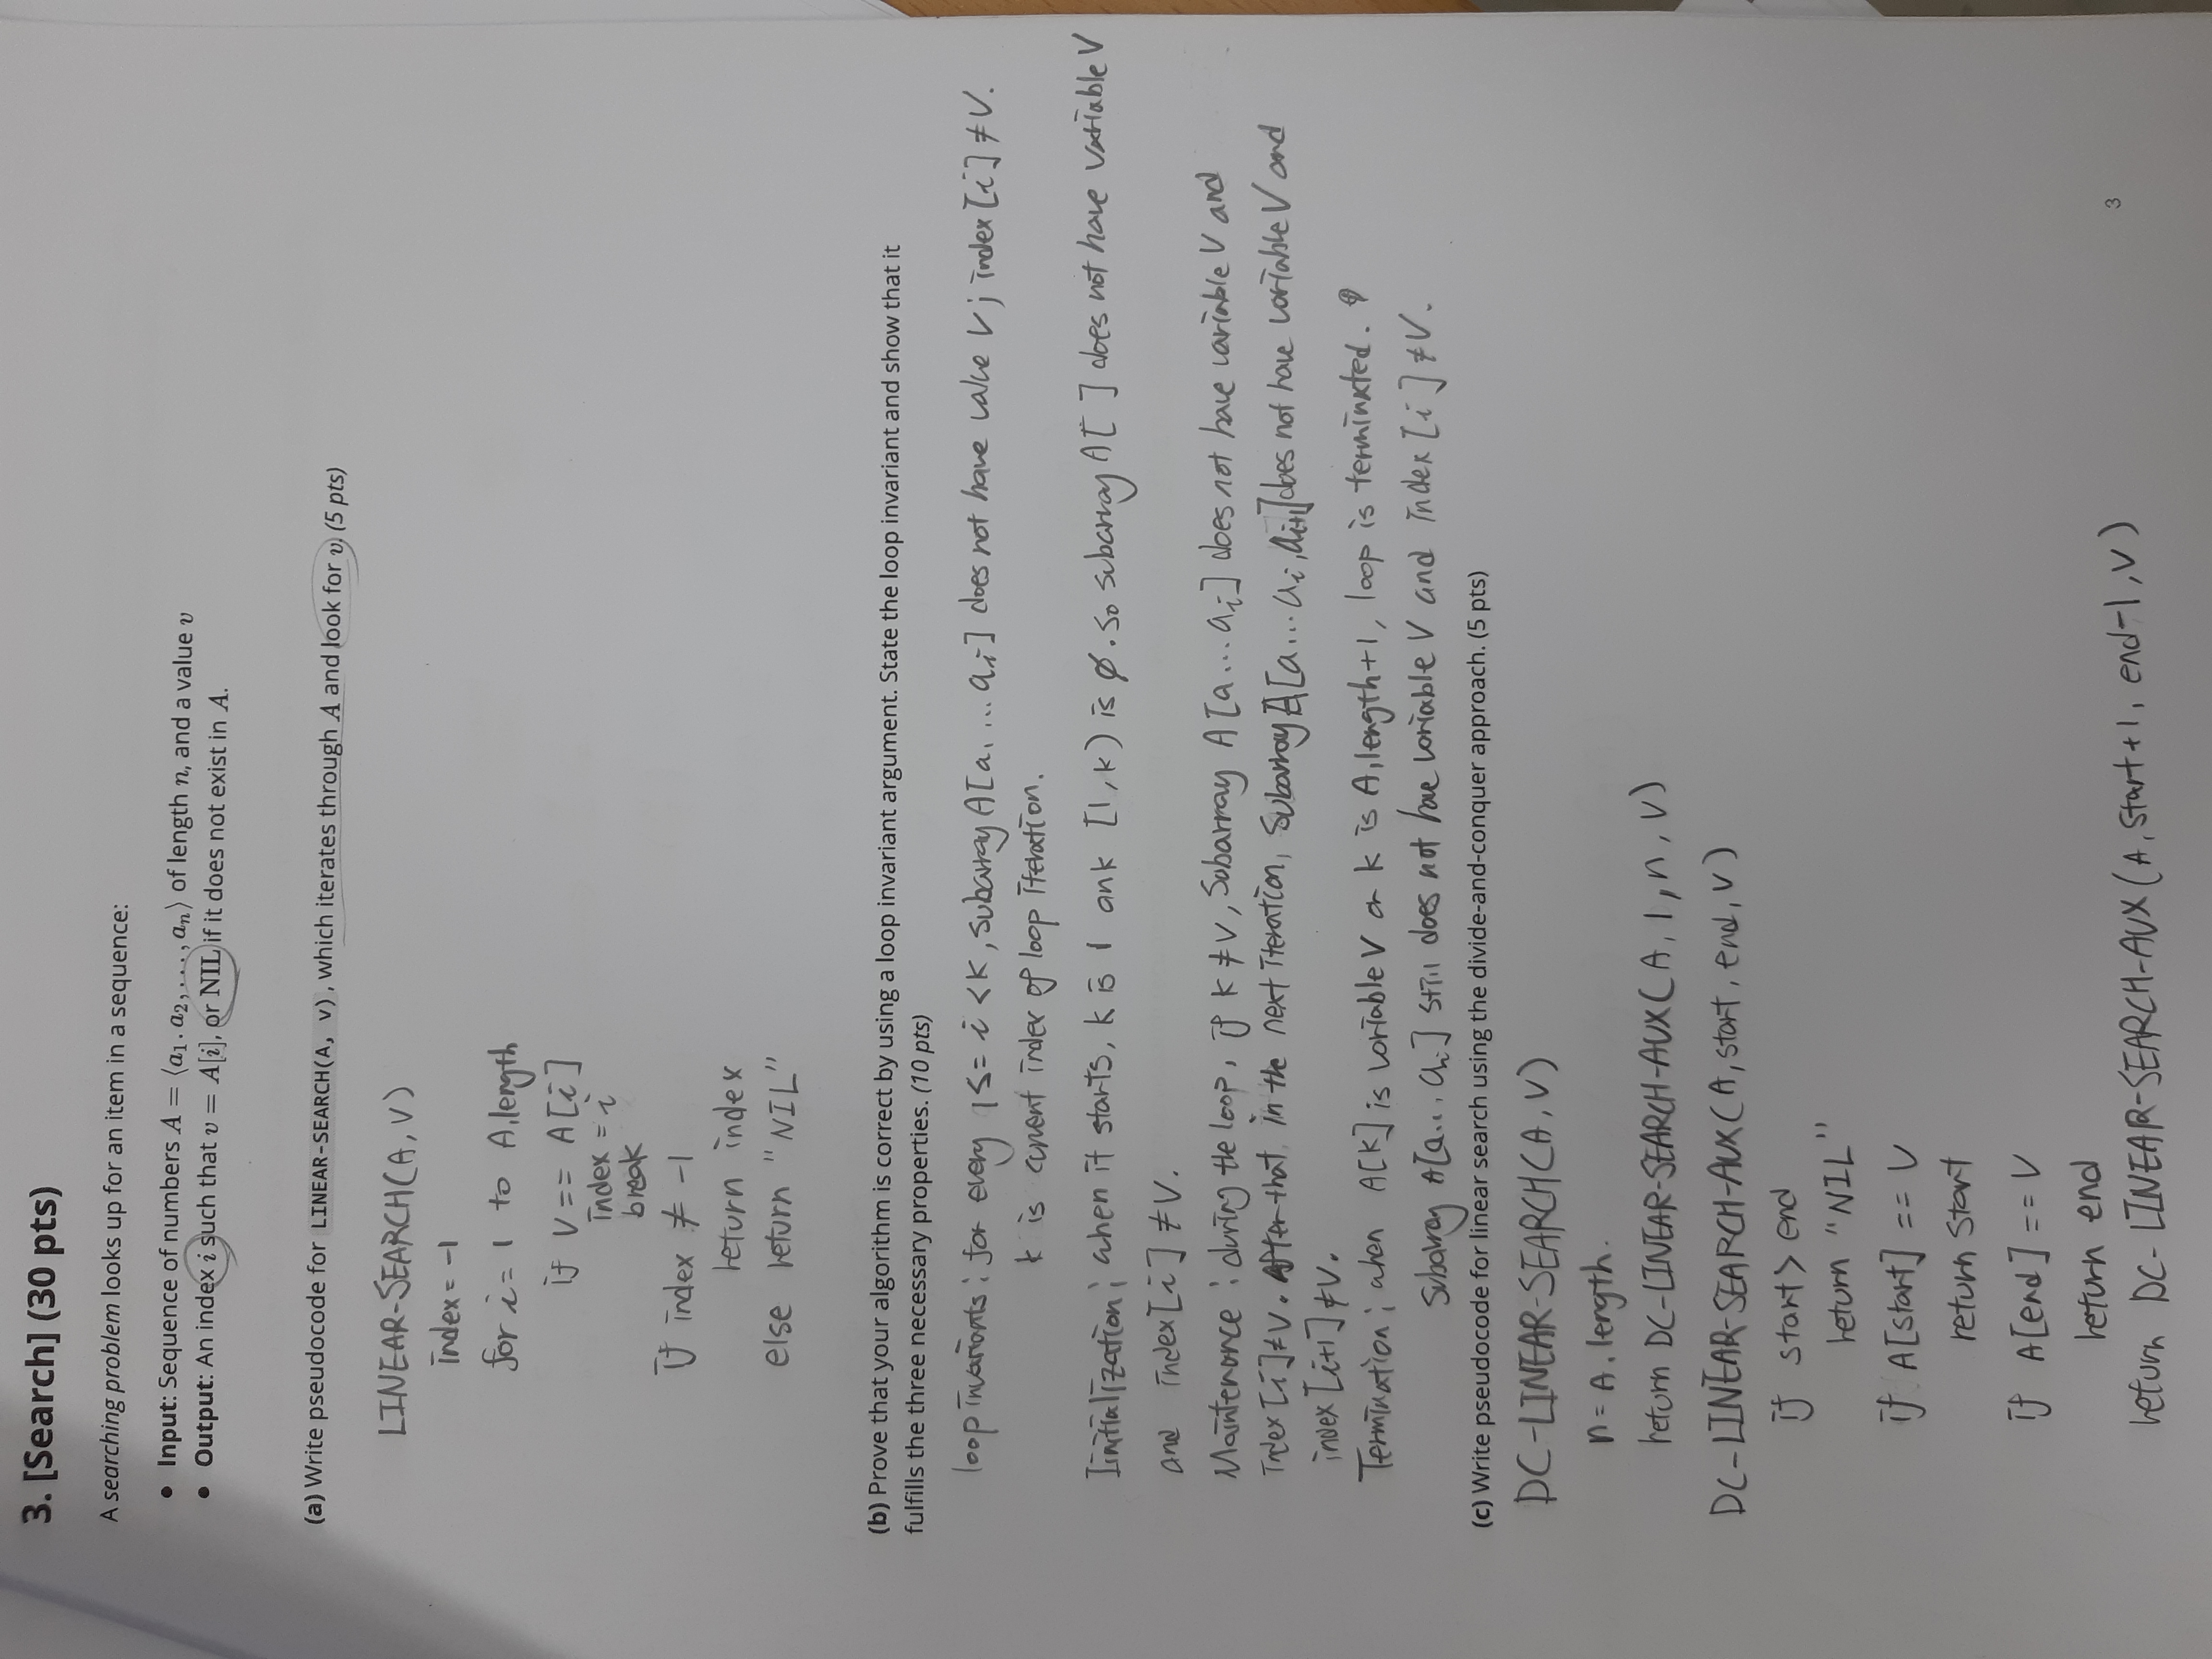 3. [Search] (30 pts)
A searching problem looks up for an item in a sequence:
• Input: Sequence of numbers A = ⟨a₁. a₂, . . . , aₙ⟩ of length n, and a value v
• Output: An index i such that v = A[i], or NIL if it does not exist in A.
(a) Write pseudocode for LINEAR-SEARCH(A, v), which iterates through A and look for v. (5 pts)
LINEAR-SEARCH(A, V)
index = -1
for i = 1 to A.length
if V == A[i]
index = i
break
if index ≠ -1
return index
else return "NIL"
(b) Prove that your algorithm is correct by using a loop invariant argument. State the loop invariant and show that it
fulfills the three necessary properties. (10 pts)
loop invariants : for every 1 <= i < k, subarray A[a, ... aᵢ] does not have value V ; index [i] ≠ V.
k is current index of loop iteration.
Iinitialization ; when it starts, k is 1 ank [1, k) is ø. so subarray A[ ] does not have variable V
and index[i] ≠ V.
Maintenance : during the loop, if k ≠ V, Subarray A [a ... aᵢ] does not have variable V and
index [i] ≠ V. After that, in the next iteration, Subarray A[a ... aᵢ, aᵢ₊₁] does not have variable V and
index [i+1] ≠ V.
Termination ; when A[k] is variable V or k is A.length+1, loop is terminated.
Subarray A[a ... aᵢ] still does not have variable V and index [i] ≠ V.
(c) Write pseudocode for linear search using the divide-and-conquer approach. (5 pts)
DC-LINEAR-SEARCH(A, V)
n = A. length.
return DC-LINEAR-SEARCH-AUX(A, 1, n, V)
DC-LINEAR-SEARCH-AUX(A, start, end, V)
if start > end
return "NIL"
if A[start] == V
return start
if A[end] == V
return end
return DC-LINEAR-SEARCH-AUX(A, start+1, end-1, V)
3